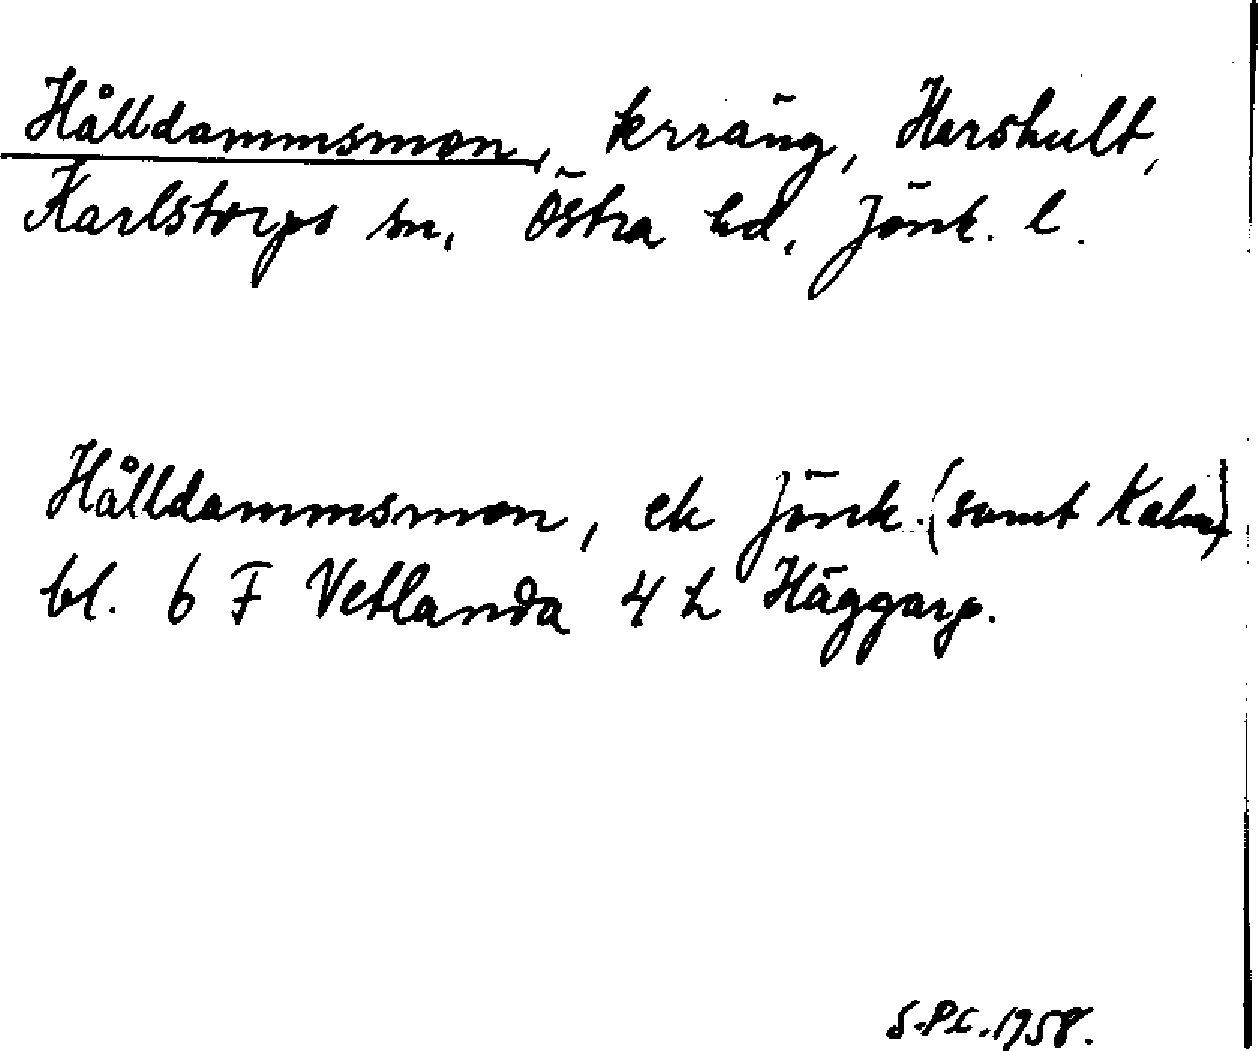 Hålldammsmon, terräng, Harshult,
Karlstorps sn, Östra hd, Jönk. l.
Hålldammsmon, ek Jönk. (samt Kalm)
bl. 6 F Vetlanda 4 h Häggarp.
S.P.C. 1958.